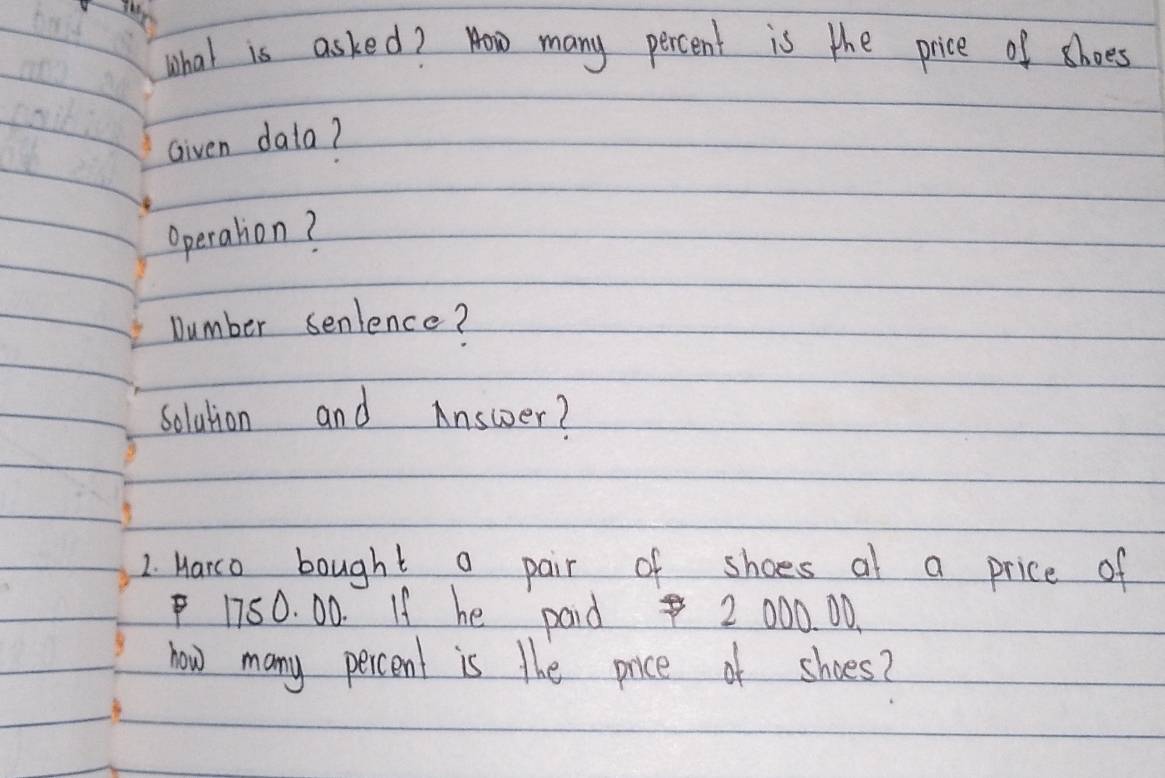 What is asked? How many percent is the price of shoes
Given data?
Operation?
Number sentence?
Solution and Answer?
2. Marco bought a pair of shoes at a price of
₱ 1750.00. If he paid ₱ 2 000.00,
how many percent is the price of shoes?